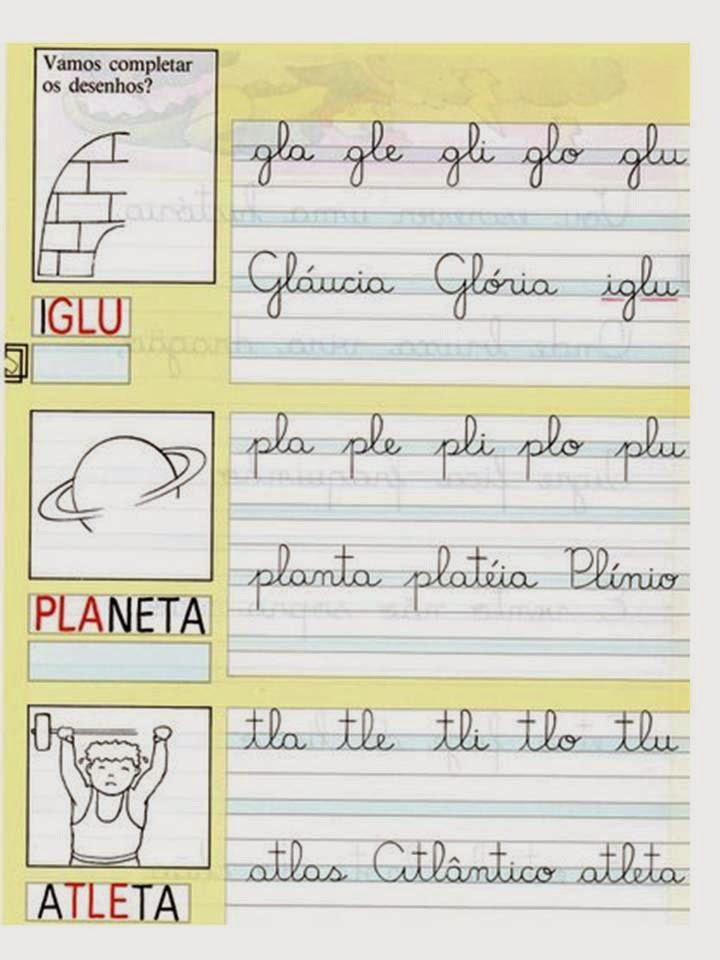 Vamos completar
os desenhos?
gla gle gli glo glu
Gláucia Glória iglu
IGLU
pla ple pli plo plu
planta platéia Plínio
PLANETA
tla tle tli tlo tlu
atlas Atlântico atleta
ATLETA